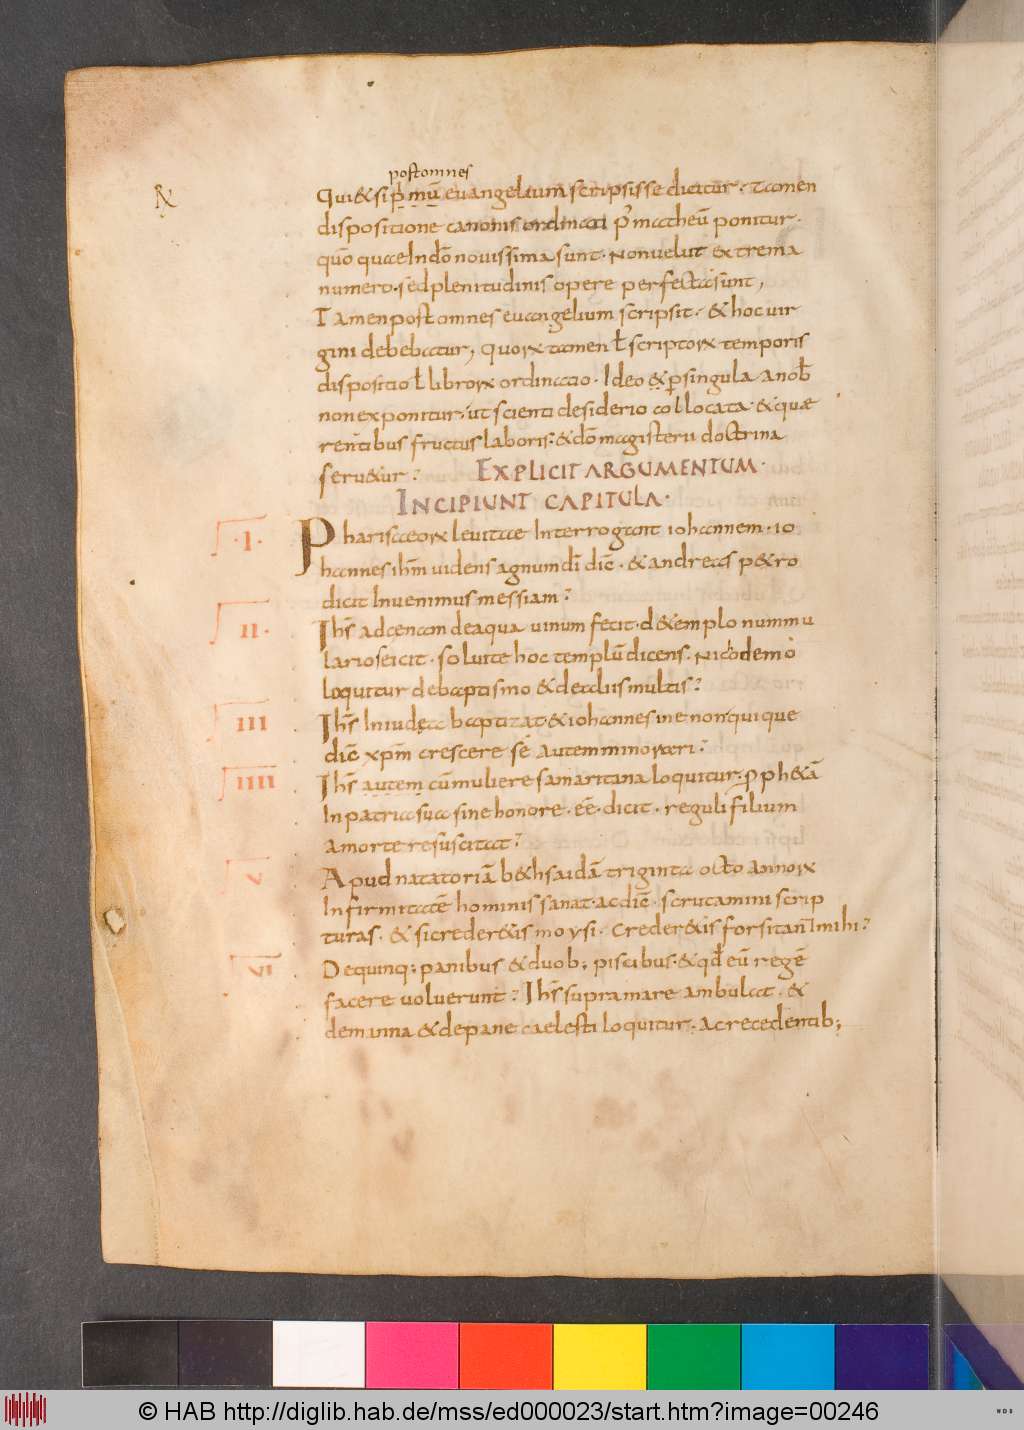 post omnes
Qui & si p̱mū euangelium scripsisse dicitur. Tamen
dispositione canonis ordinati p᷑ matheū ponitur.
quō quae In dn̄o nouissima sunt. Non uelut extrema
numero. sed plenitudinis opere perfecta sunt,
Tamen post omnes euangelium scripsit. & hoc uir
gini debebatur, quoꝝ tamen ł scriptoꝝ temporis
dispositio ł libroꝝ ordinatio. Ideo & p̱ singula a nob̄
non exponitur. ut scienti desiderio collocata. & quae
rentibus fructus laboris: & dō magisterii doctrina
seru&ur?
EXPLICIT ARGUMENTUM.
INCIPIUNT CAPITULA.
.I.
Pharisaeoꝝ leuitae Interrogant iohannem. io
hannes ihm̄ uidens agnum dī dic̄. & andreas p&ro
dicit Inuenimus messiam?
II.
Ihs̄ ad cenam de aqua uinum fecit. d& emplo nummu
larios eicit. soluite hoc templū dicens. Nicodemo
loquitur de baptismo & de aliis multis?
III
Ihs̄ In iudęa baptizat & iohannes in enon qui que
dic̄ xpm̄ crescere sē autem minorari?
IIII
Ihs̄ autem cū muliere samaritana loquitur. ꝓph&ā
In patria sua sine honore. eē. dicit. reguli filium
a morte resuscitat?
V
Apud natatoriā b&hsaidā triginta octo annoꝝ
Infirmitatē hominis sanat. ac dic̄. scrutamini scrip
turas. & si creder&is moysi. Creder&is forsitan & mihi?
VI
De quinq; panibus & duob; piscibus. & qđ eū regē
facere uoluerunt? Ihs̄ supra mare ambulat. &
de manna & de pane caelesti loquitur. ac recedentib;
© HAB http://diglib.hab.de/mss/ed000023/start.htm?image=00246